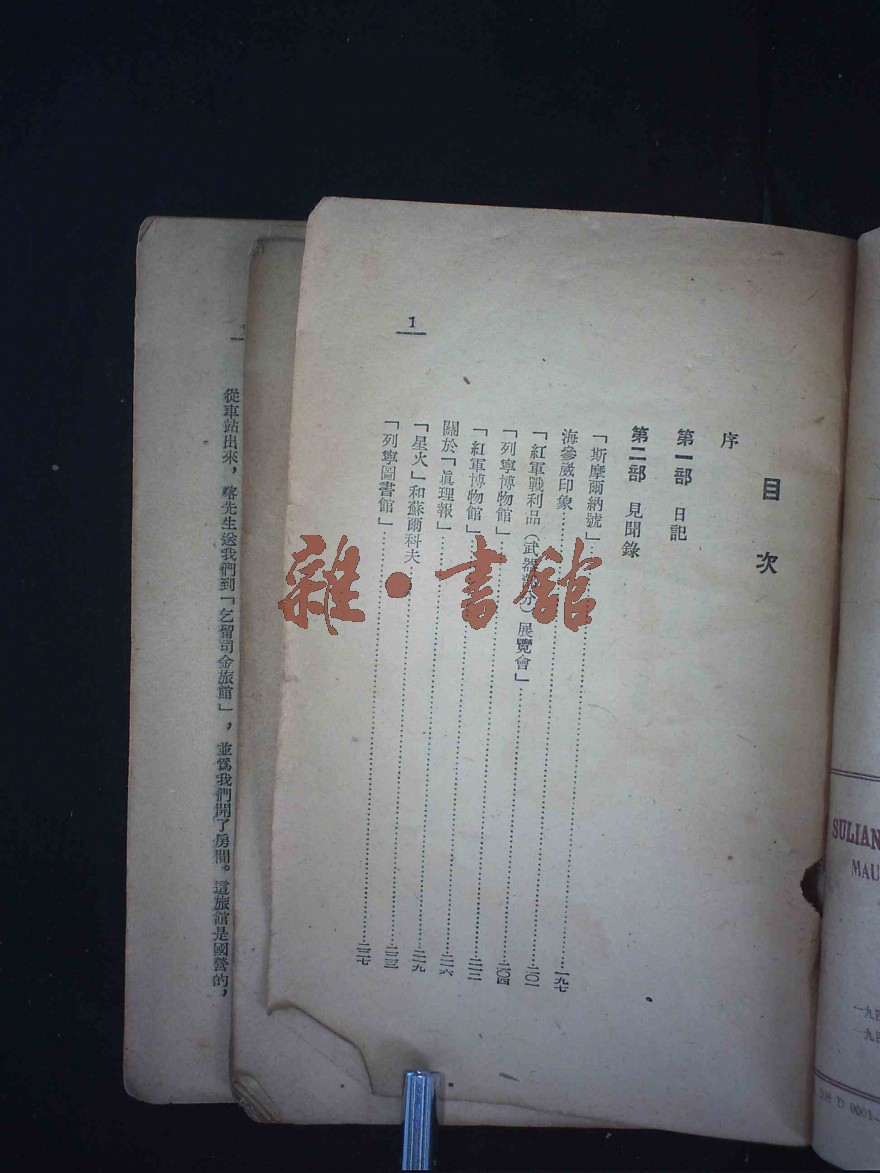 SULIAN
MAU
一九四
一九四
D 0001-
目次
序
第一部 日記
第二部 見聞錄
「斯摩爾納號」……一九七
海參崴印象……二〇一
「紅軍戰利品(武器部分)展覽會」……二〇四
「列寧博物館」……二一二
「紅軍博物館」……二一六
關於「眞理報」……二一九
「星火」和蘇爾科夫……二二三
「列寧圖書館」……二二七
1
從車站出來,喀先生送我們到「乞留司金旅館」,並爲我們開了房間。這旅館是國營的,
雜·書館